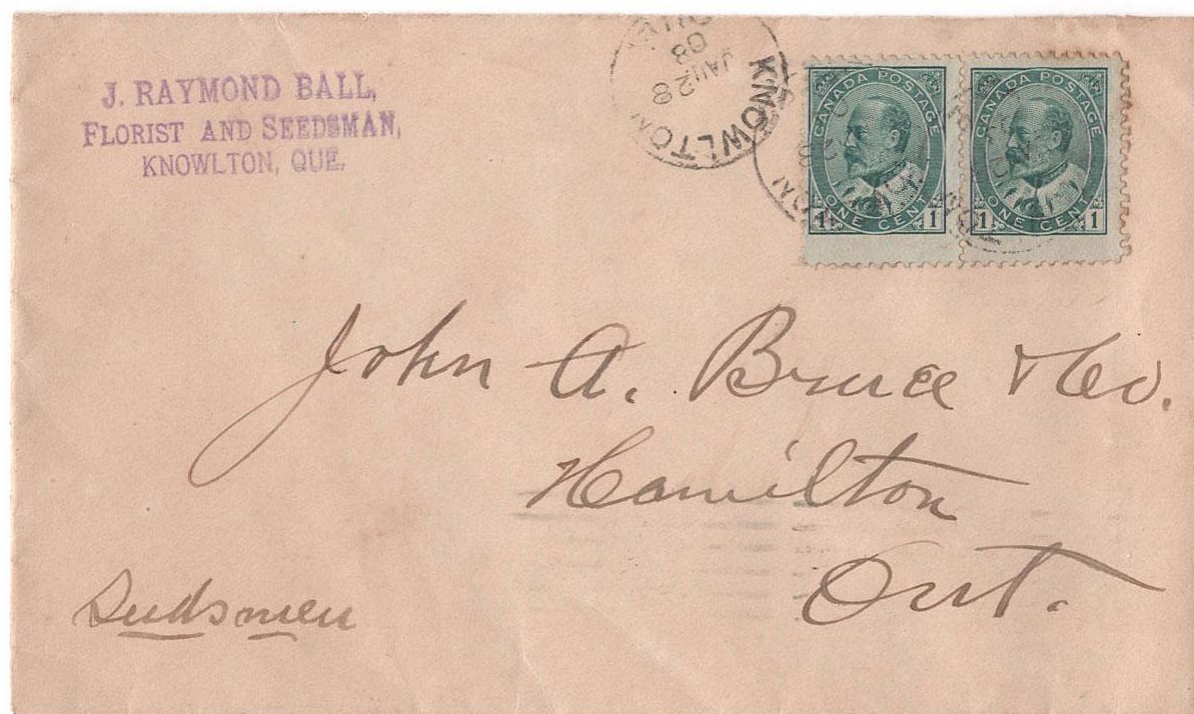 J. RAYMOND BALL,
FLORIST AND SEEDSMAN,
KNOWLTON, QUE.
KNOWLTON
JAN 28
08
QUE
CANADA POSTAGE
1 ONE CENT 1
CANADA POSTAGE
1 ONE CENT 1
John A. Bruce & Co.
Hamilton
Ont.
Seedsmen